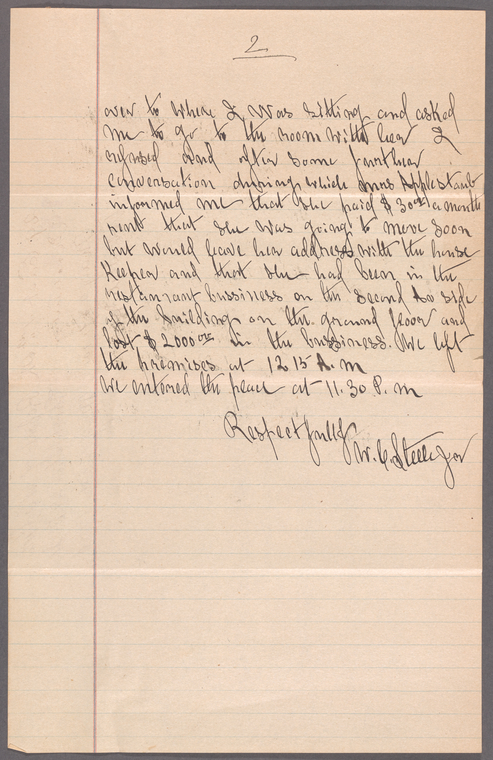 2
over to where I was sitting and asked
me to go to the room with her I
refused and after some further
conversation during which Mrs Applestaub
informed me that she paid $30.00 a month
rent that she was going to move soon
but would leave her address with the house
Keeper and that she had been in the
restaurant bussiness on the Second Av side
of the building on the ground floor and
lost $2000.00 in the bussiness. We left
the premises at 12 15 A.M
We entered the place at 11.30 P.M
Respectfully
W. C. Steele Jr